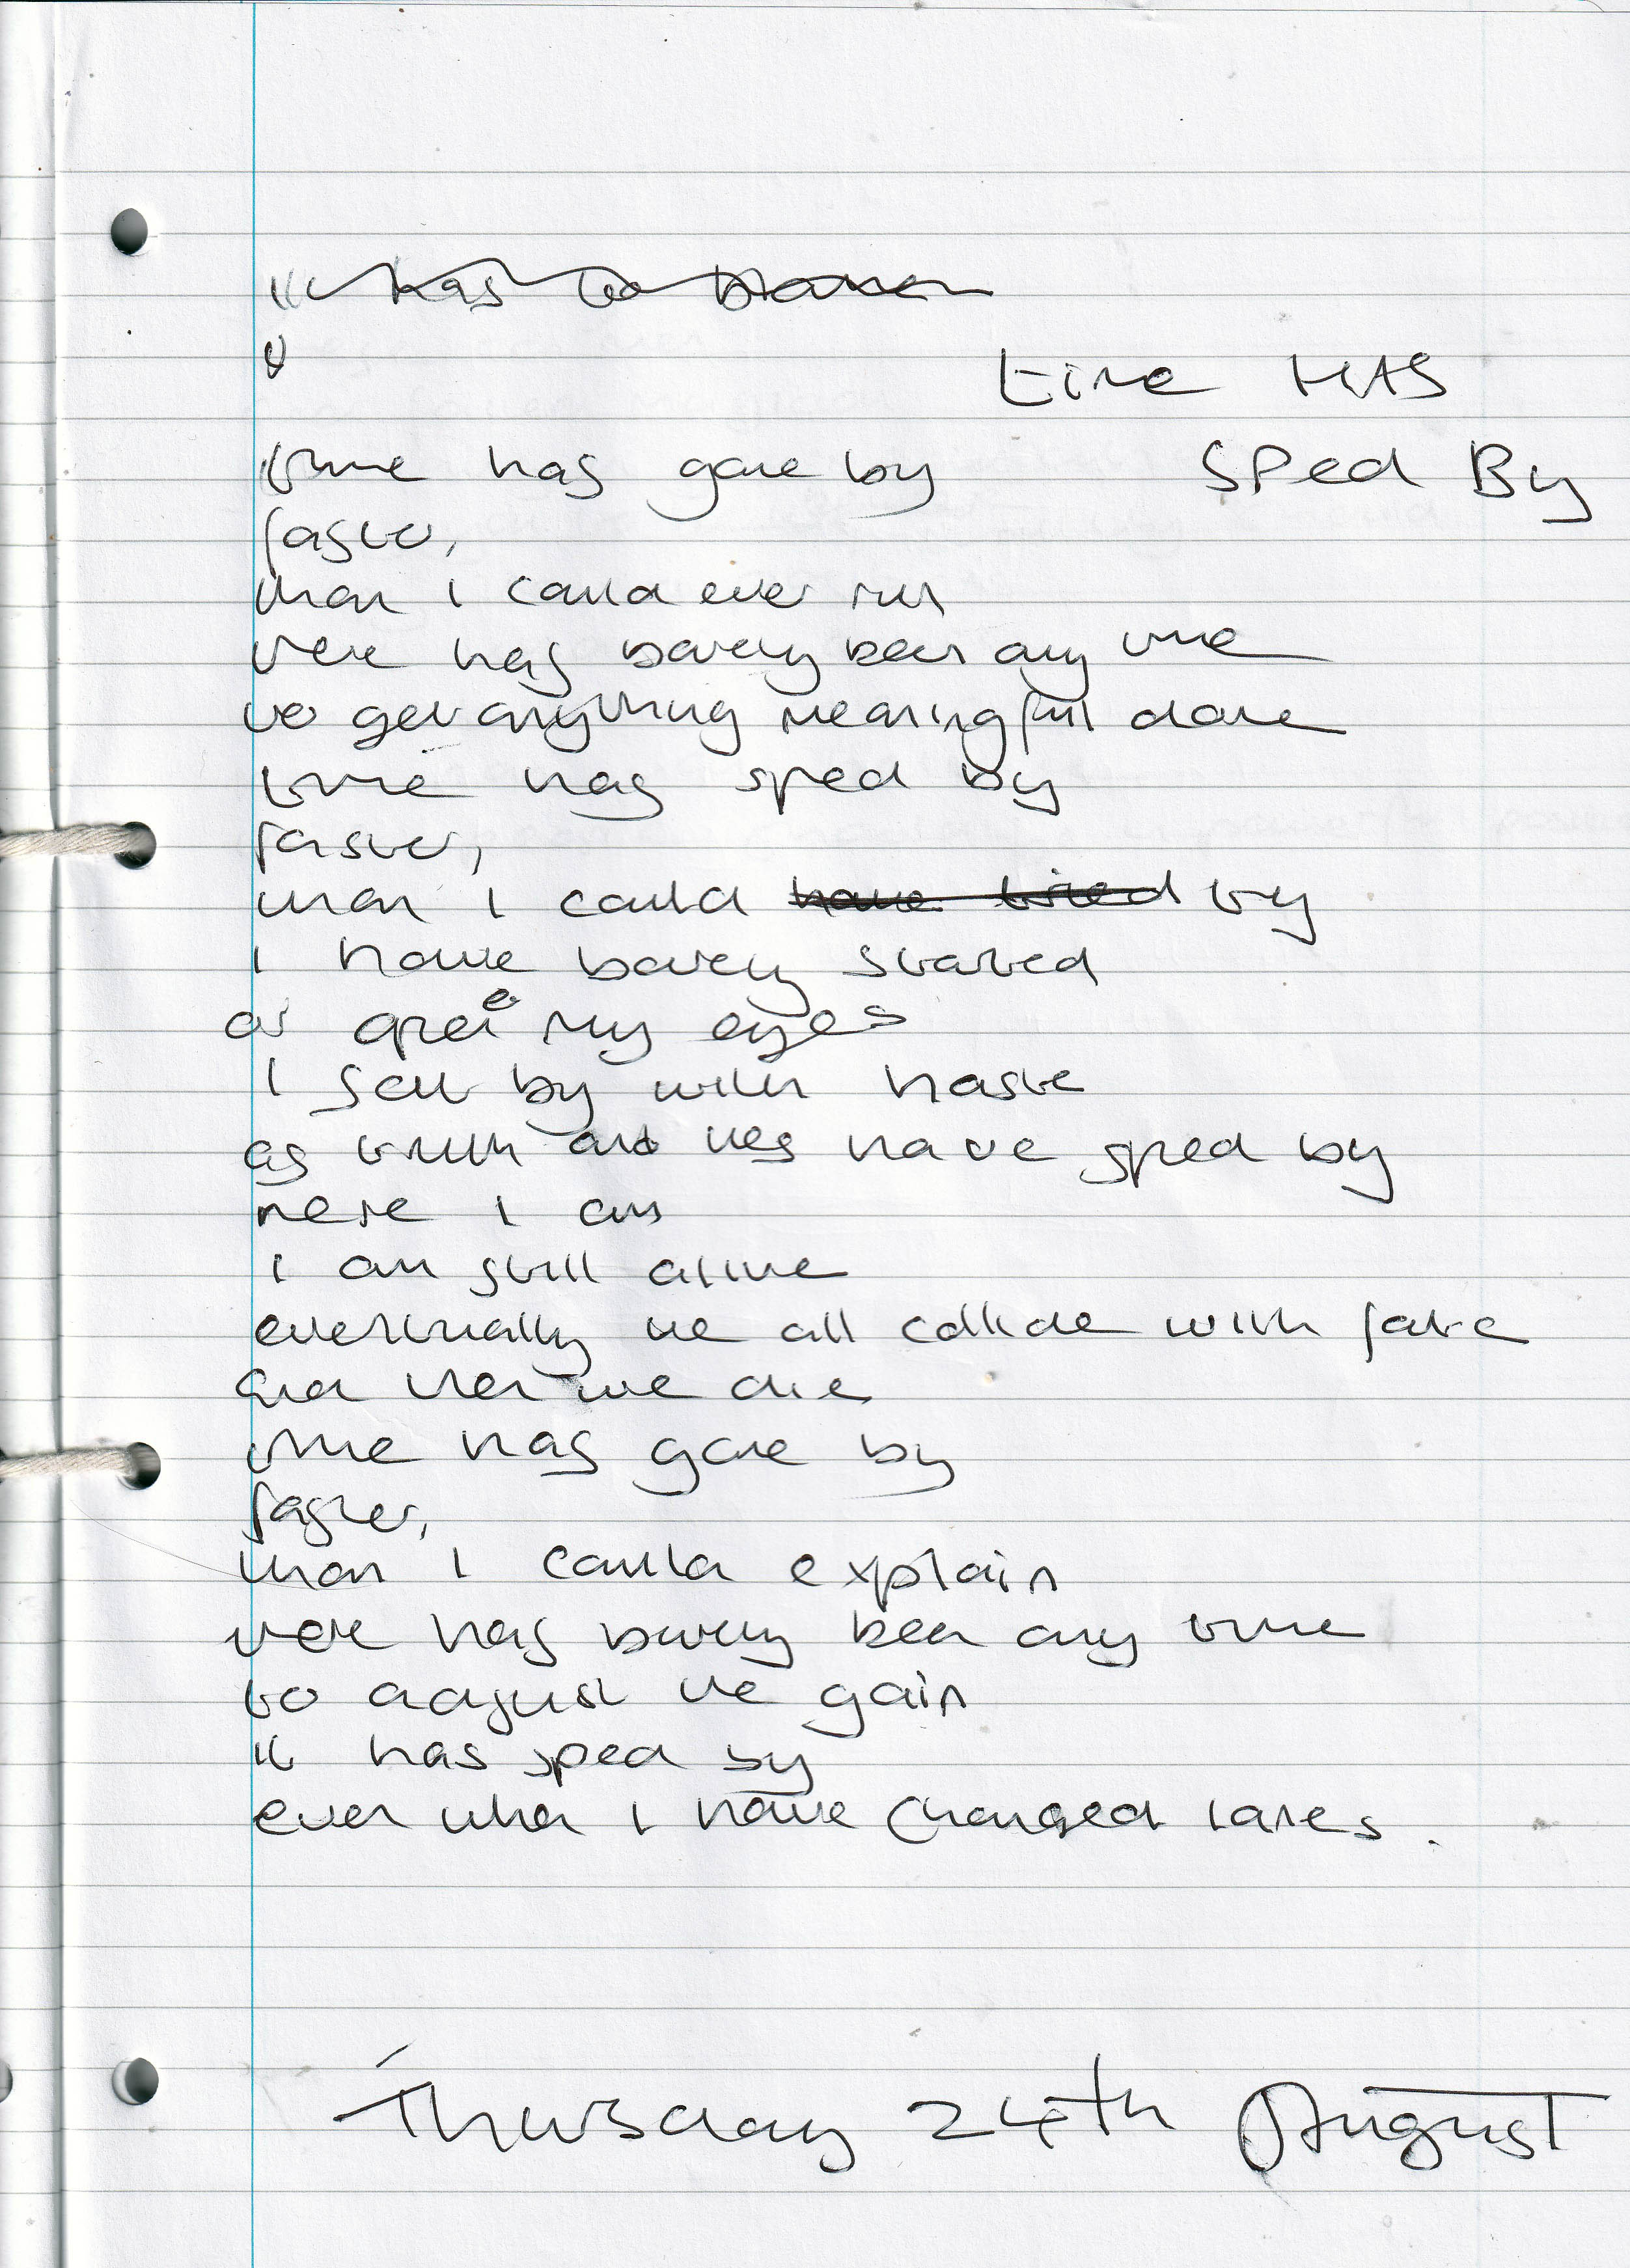 it has
Time HAS
Sped By
time has gone by
faster,
than I could ever run
there has barely been any time
to get anything meaningful done
time has sped by
faster,
than I could have tried try
I have barely started
or open my eyes
I get by with haste
as truth and lies have sped by
here I am
I am still alive
eventually we all collide with fate
and then we die
time has gone by
faster,
than I could explain
there has barely been any time
to adjust the gain
it has sped by
even when I have changed lanes.
Thursday 24th August